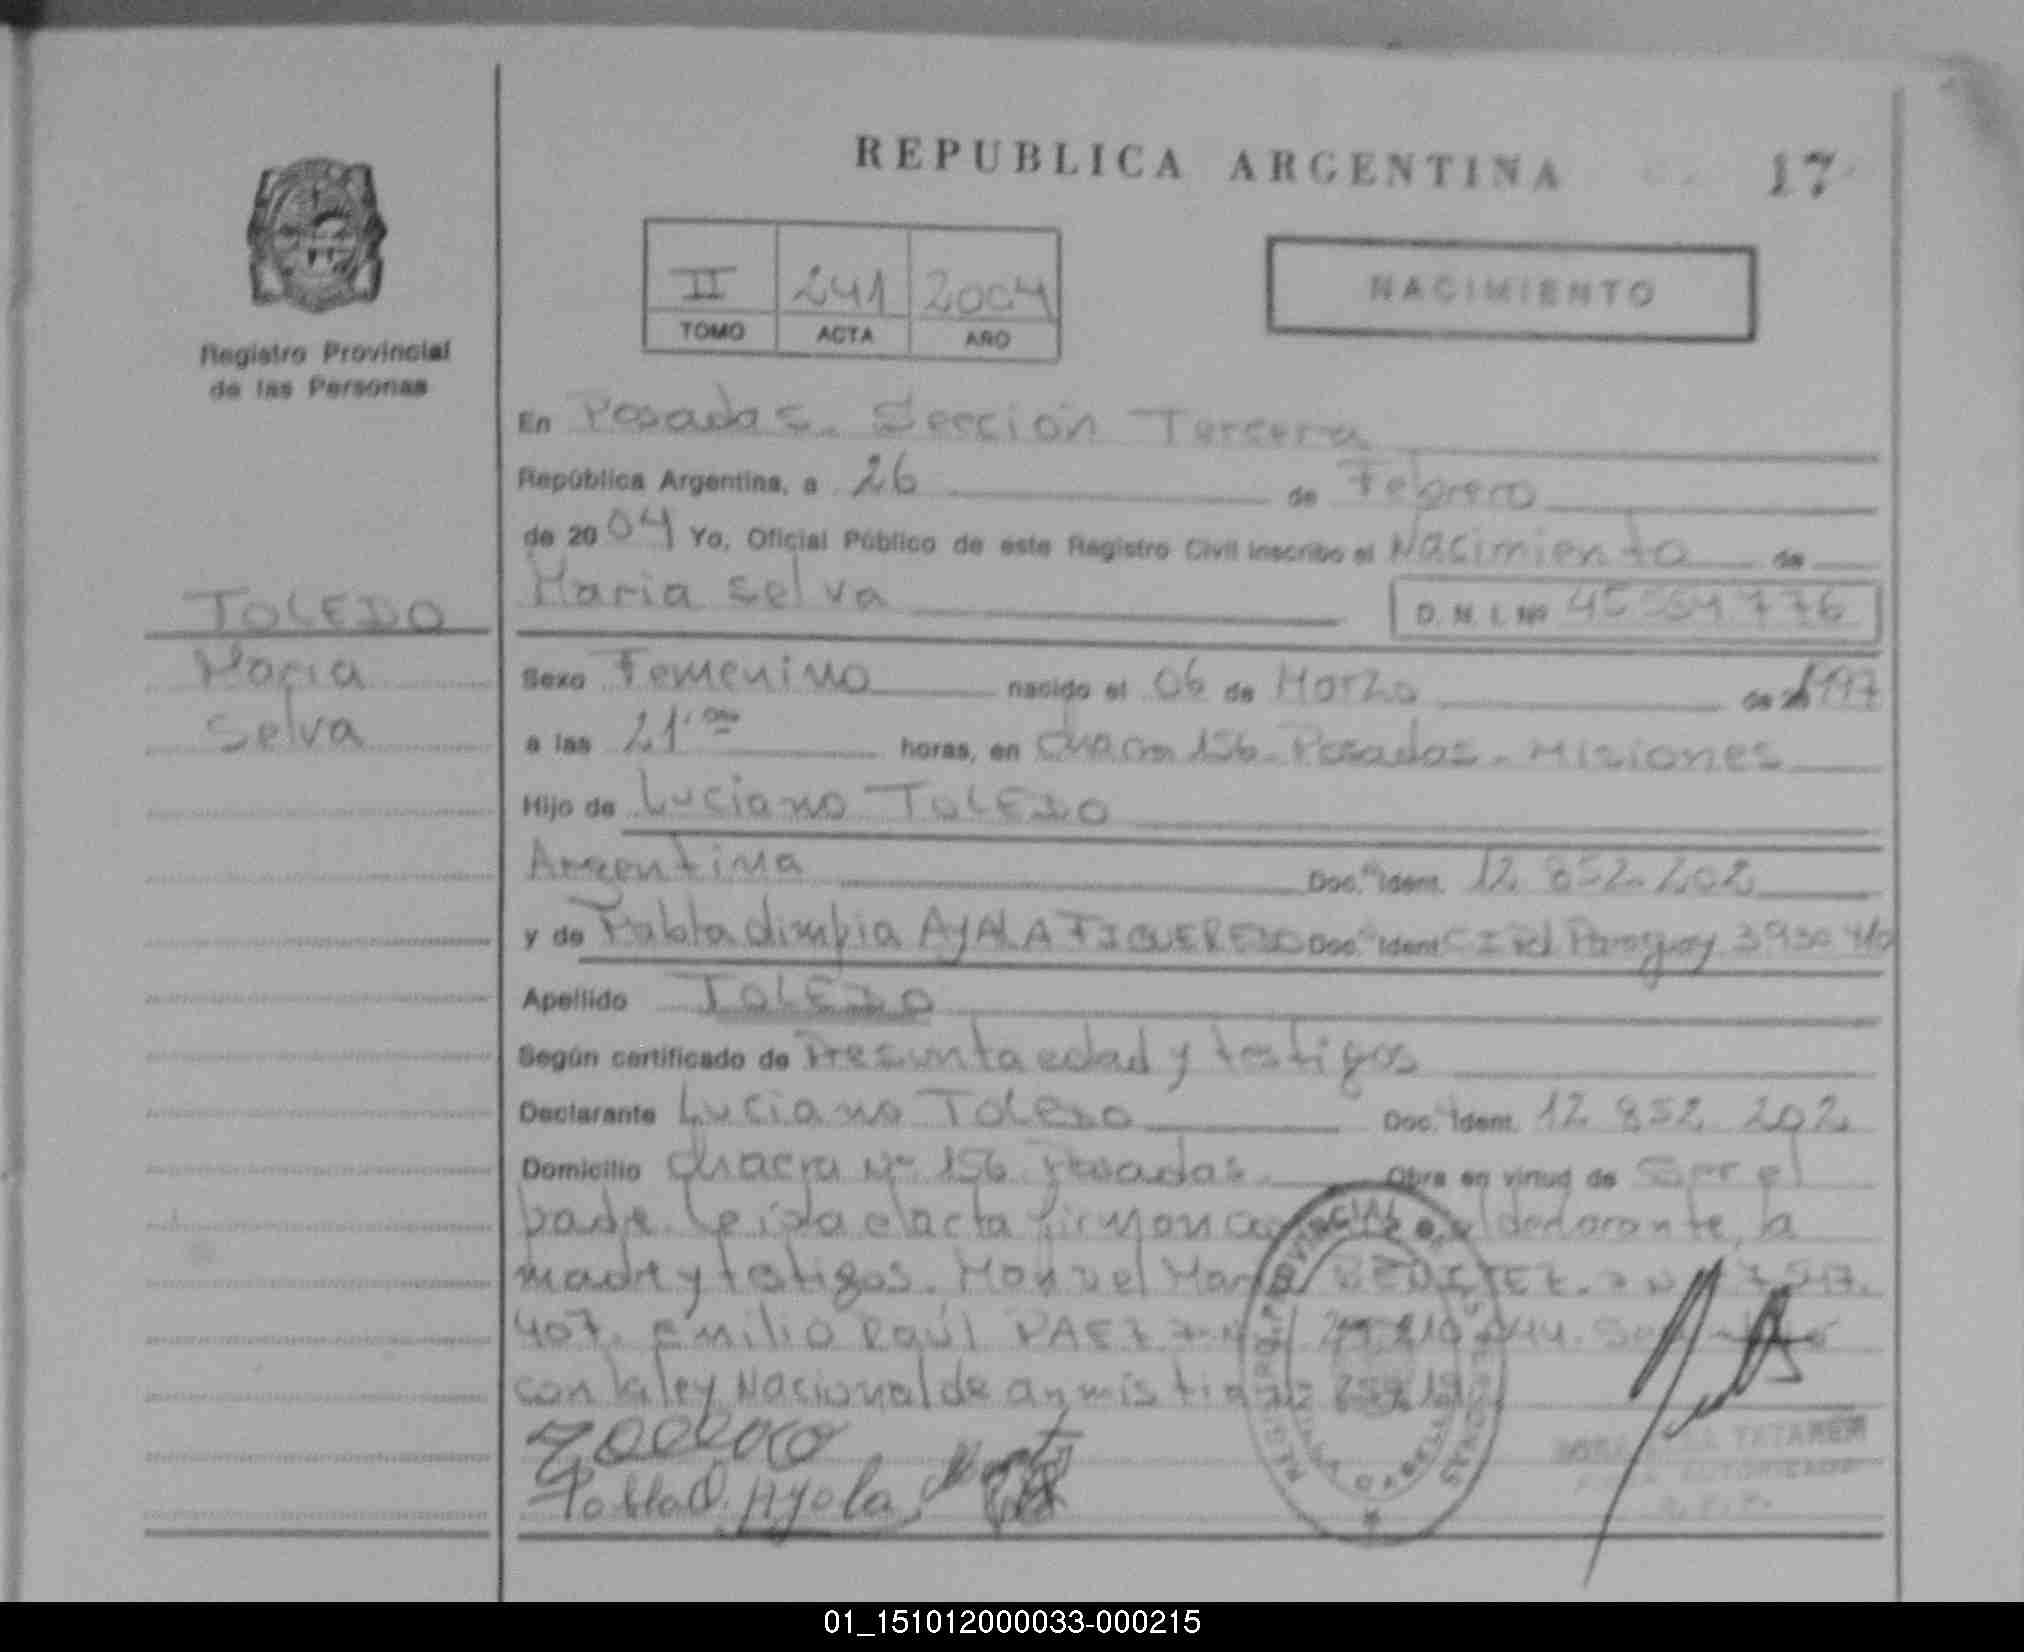 REPUBLICA ARGENTINA
17
II 241 2004
TOMO ACTA AÑO
NACIMIENTO
Registro Provincial
de las Personas
En Posadas. Sección Tercera
República Argentina, a 26 de Febrero
de 2004 Yo, Oficial Público de este Registro Civil inscribo el Nacimiento de
TOLEDO
Maria Selva
D. N. I. Nº
Maria
Selva
Sexo Femenino nacido el 06 de Marzo de 1997
a las 21 horas, en Chacra 156. Posadas. Misiones
Hijo de Luciano TOLEDO
Argentina Doc. Ident. 12 852 202
y de Pabla Olimpia AYALA FIGUEREDO Doc. Ident C I del Paraguay
Apellido TOLEDO
Según certificado de Presunta edad y testigos
Declarante Luciano TOLEDO Doc. Ident. 12 852 202
Domicilio Chacra Nº 156 Posadas. Obra en virtud de Ser el
padre. Leida el acta firman el declarante, la
madre y testigos. Manuel
407. Emilio Raúl PAEZ
con la ley Nacional de
Toledo
Pabla O. Ayala
01_151012000033-000215